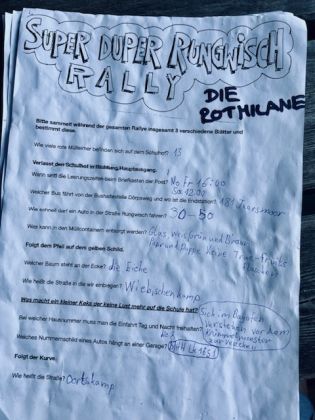 SUPER DUPER RUNGWISCH
RALLY
DIE
ROTMILANE
Bitte sammelt während der gesamten Rallye insgesamt 3 verschiedene Blätter und
bestimmt diese.
Wie viele rote Mülleimer befinden sich auf dem Schulhof? 13
Verlasst den Schulhof in Richtung Hauptausgang.
Wann sind die Leerungszeiten beim Briefkasten der Post? Mo Fr 16:00
Sa 12:00
Welcher Bus fährt von der Bushaltestelle Dörpsweg und wo ist die Endstation? 181
Wie schnell darf ein Auto in der Straße Rungwisch fahren? 30-50
Was kann in den Müllcontainern entsorgt werden? Glas Weis, Grün und Braun
Papier und Pappe keine
Folgt dem Pfeil auf dem gelben Schild.
Welcher Baum steht an der Ecke? die Eiche
Wie heißt die Straße in die wir einbiegen? Wiebischenkamp
Was macht ein kleiner Keks der keine Lust mehr auf die Schule hat?
Sich im
verstecken vor dem
Bei welcher Hausnummer muss man die Einfahrt Tag und Nacht freihalten?
Welches Nummernschild eines Autos hängt an einer Garage?
Folgt der Kurve.
Wie heißt die Straße? Oortskamp